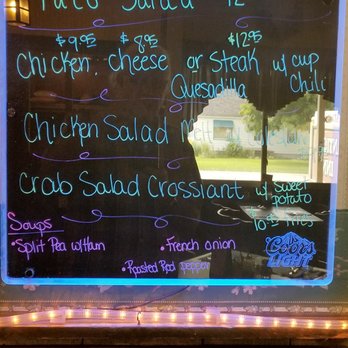 Taco Salad 12
$9.95 $8.95 $12.95
Chicken, cheese or Steak w/ cup
Quesadilla Chili
Chicken Salad Melt
Crab Salad Crossiant w/ sweet
potato
10.95 fries
Soups
• Split Pea w/Ham • French onion
• Roasted Red pepper
Coors
LIGHT